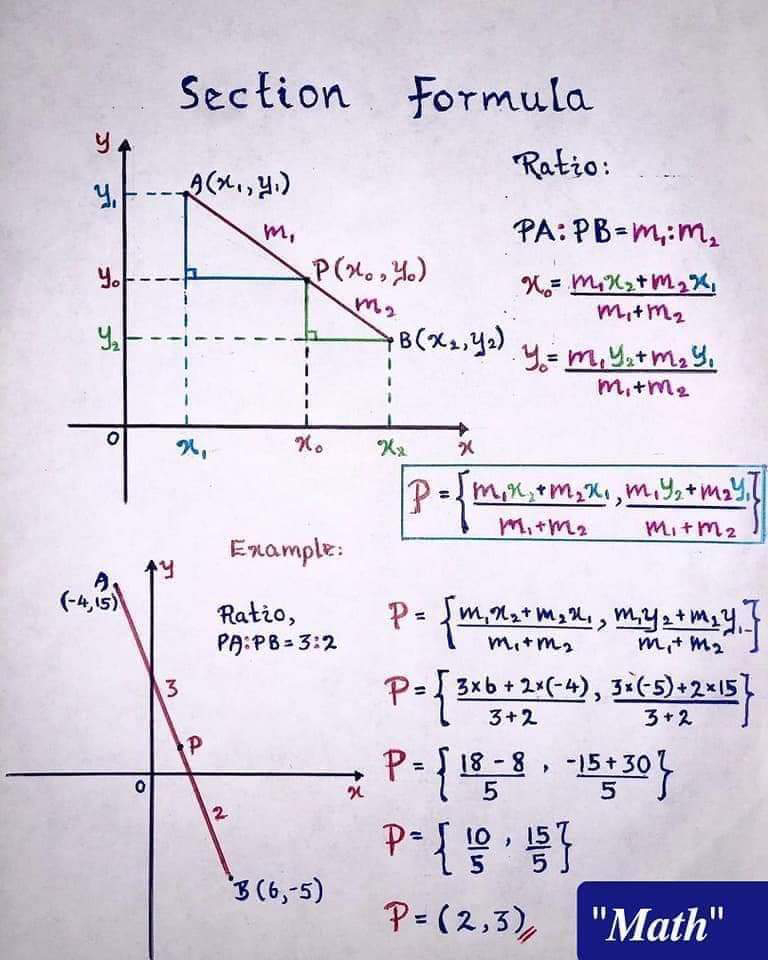 Section Formula
y
y₁
A(x₁, y₁)
m₁
y₀
P(x₀, y₀)
m₂
y₂
B(x₂, y₂)
0
x₁
x₀
x₂
x
Ratio:
PA:PB=m₁:m₂
x₀= (m₁x₂+m₂x₁)/(m₁+m₂)
y₀= (m₁y₂+m₂y₁)/(m₁+m₂)
P={(m₁x₂+m₂x₁)/(m₁+m₂), (m₁y₂+m₂y₁)/(m₁+m₂)}
Example:
y
A
(-4,15)
3
P
0
x
2
B(6,-5)
Ratio,
PA:PB=3:2
P= {(m₁x₂+m₂x₁)/(m₁+m₂), (m₁y₂+m₂y₁)/(m₁+m₂)}
P={(3×6+2×(-4))/(3+2), (3×(-5)+2×15)/(3+2)}
P={(18-8)/5, (-15+30)/5}
P={10/5, 15/5}
P=(2,3)
"Math"